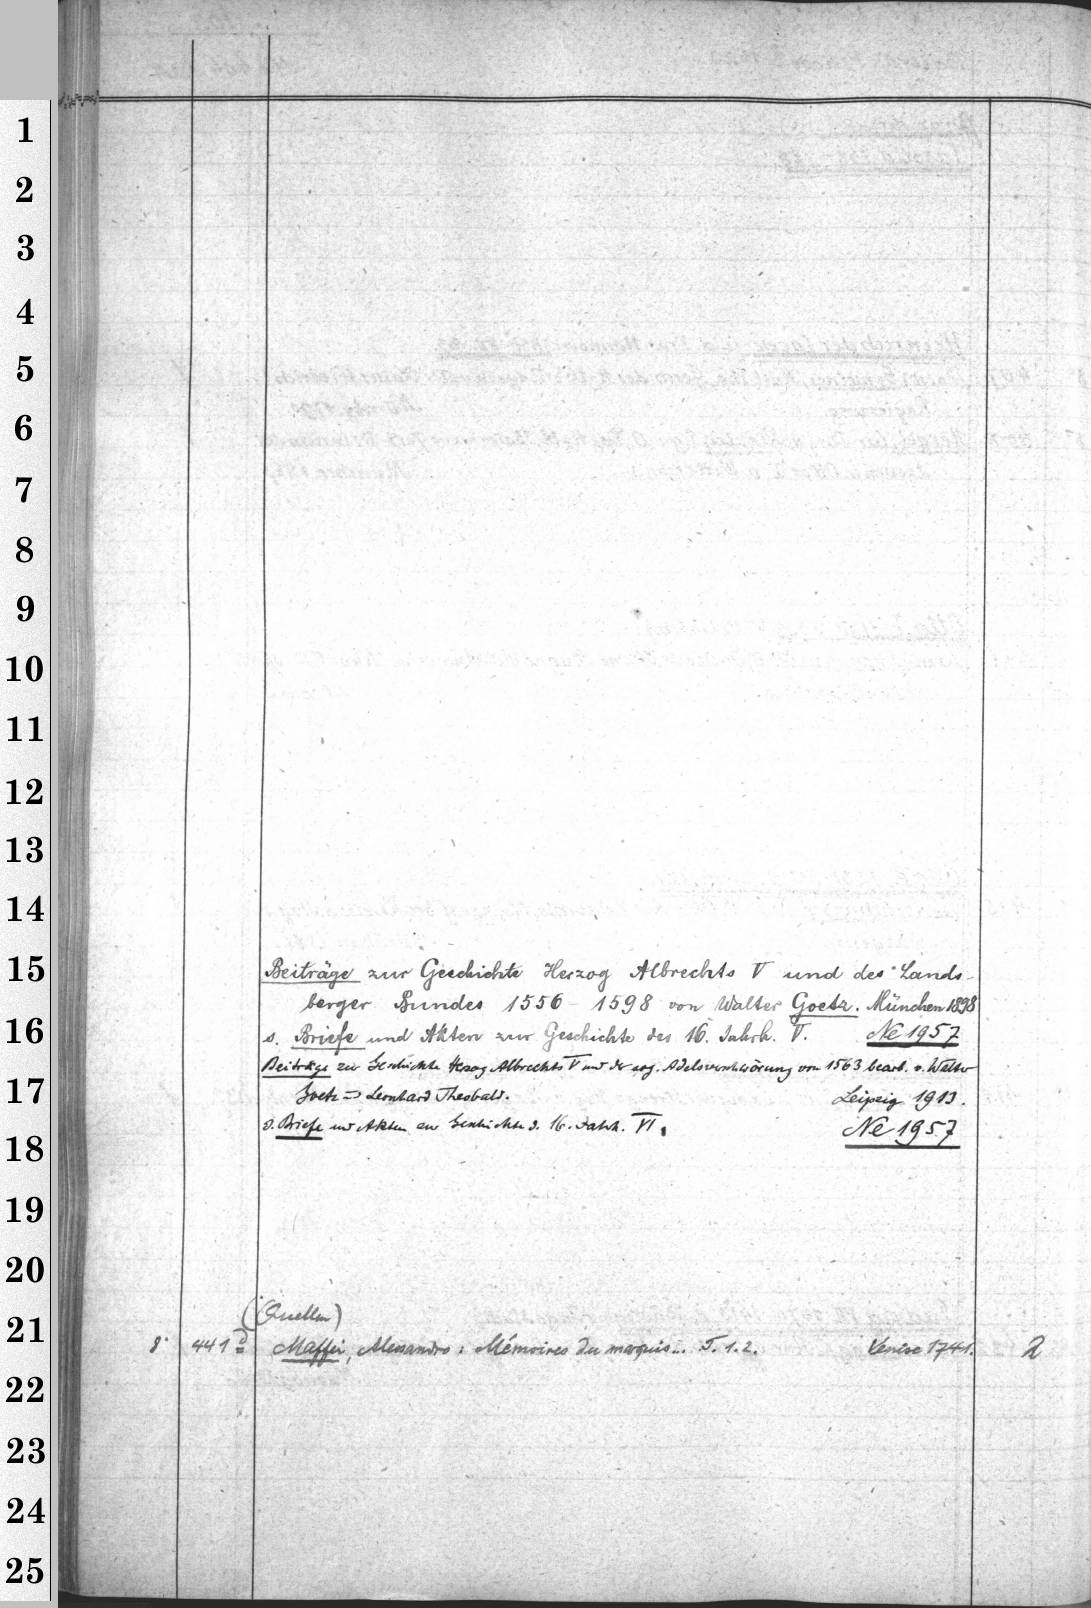 1
2
3
4
5
6
7
8
9
10
11
12
13
14
15
16
17
18
19
20
21
22
23
24
25
Beiträge zur Geschichte Herzog Albrechts V und des Lands-
berger Bundes 1556 - 1598 von Walter Goetz. München 1898
s. Briefe und Akten zur Geschichte des 16. Jahrh. V. Ne 1957
Beiträge zur Geschichte Herzog Albrechts V und der sog. Adelsverschwörung von 1563 bearb. v. Walter
Goetz = Leonhard Theobald. Leipzig 1913.
s. Briefe und Akten zur Geschichte d. 16. Jahrh. VI. Ne 1957
(Quellen)
8° 441 Maffei, Alessandro: Mémoires du marquis... T. 1.2. Venise 1741. 2